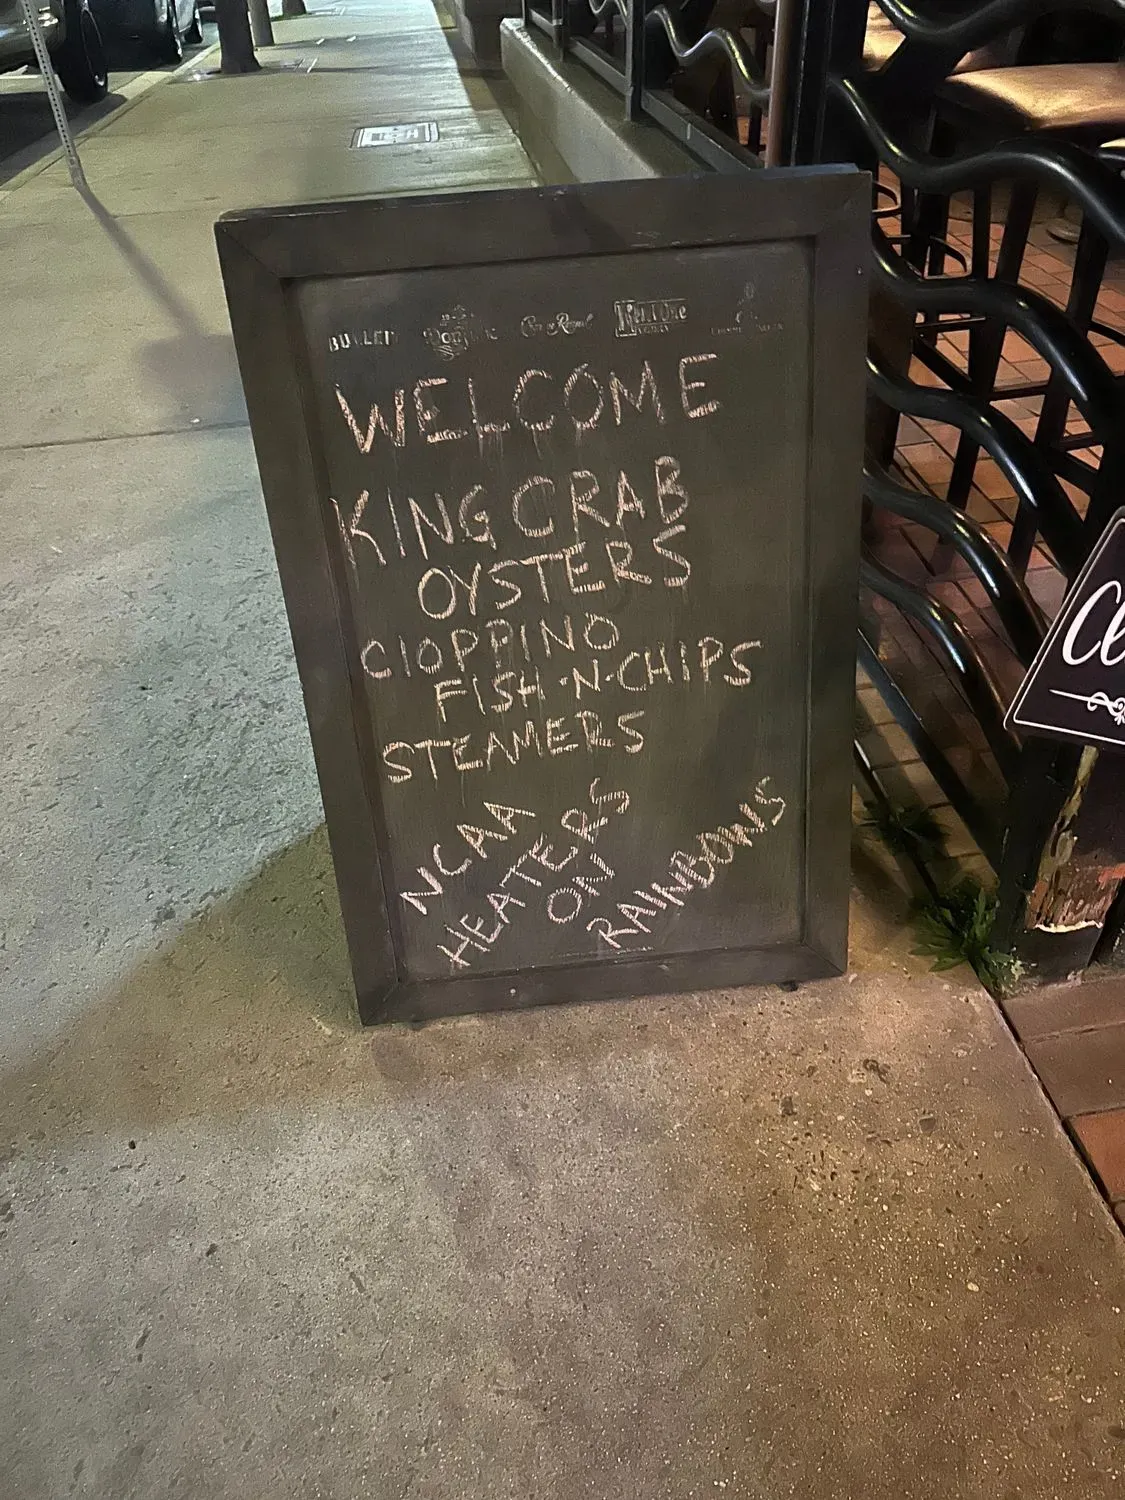 BULLEIT Don Julio Crown Royal Ketel One
WELCOME
KING CRAB
OYSTERS
CIOPPINO
FISH·N·CHIPS
STEAMERS
NCAA
HEATERS
ON
RAINBOWS